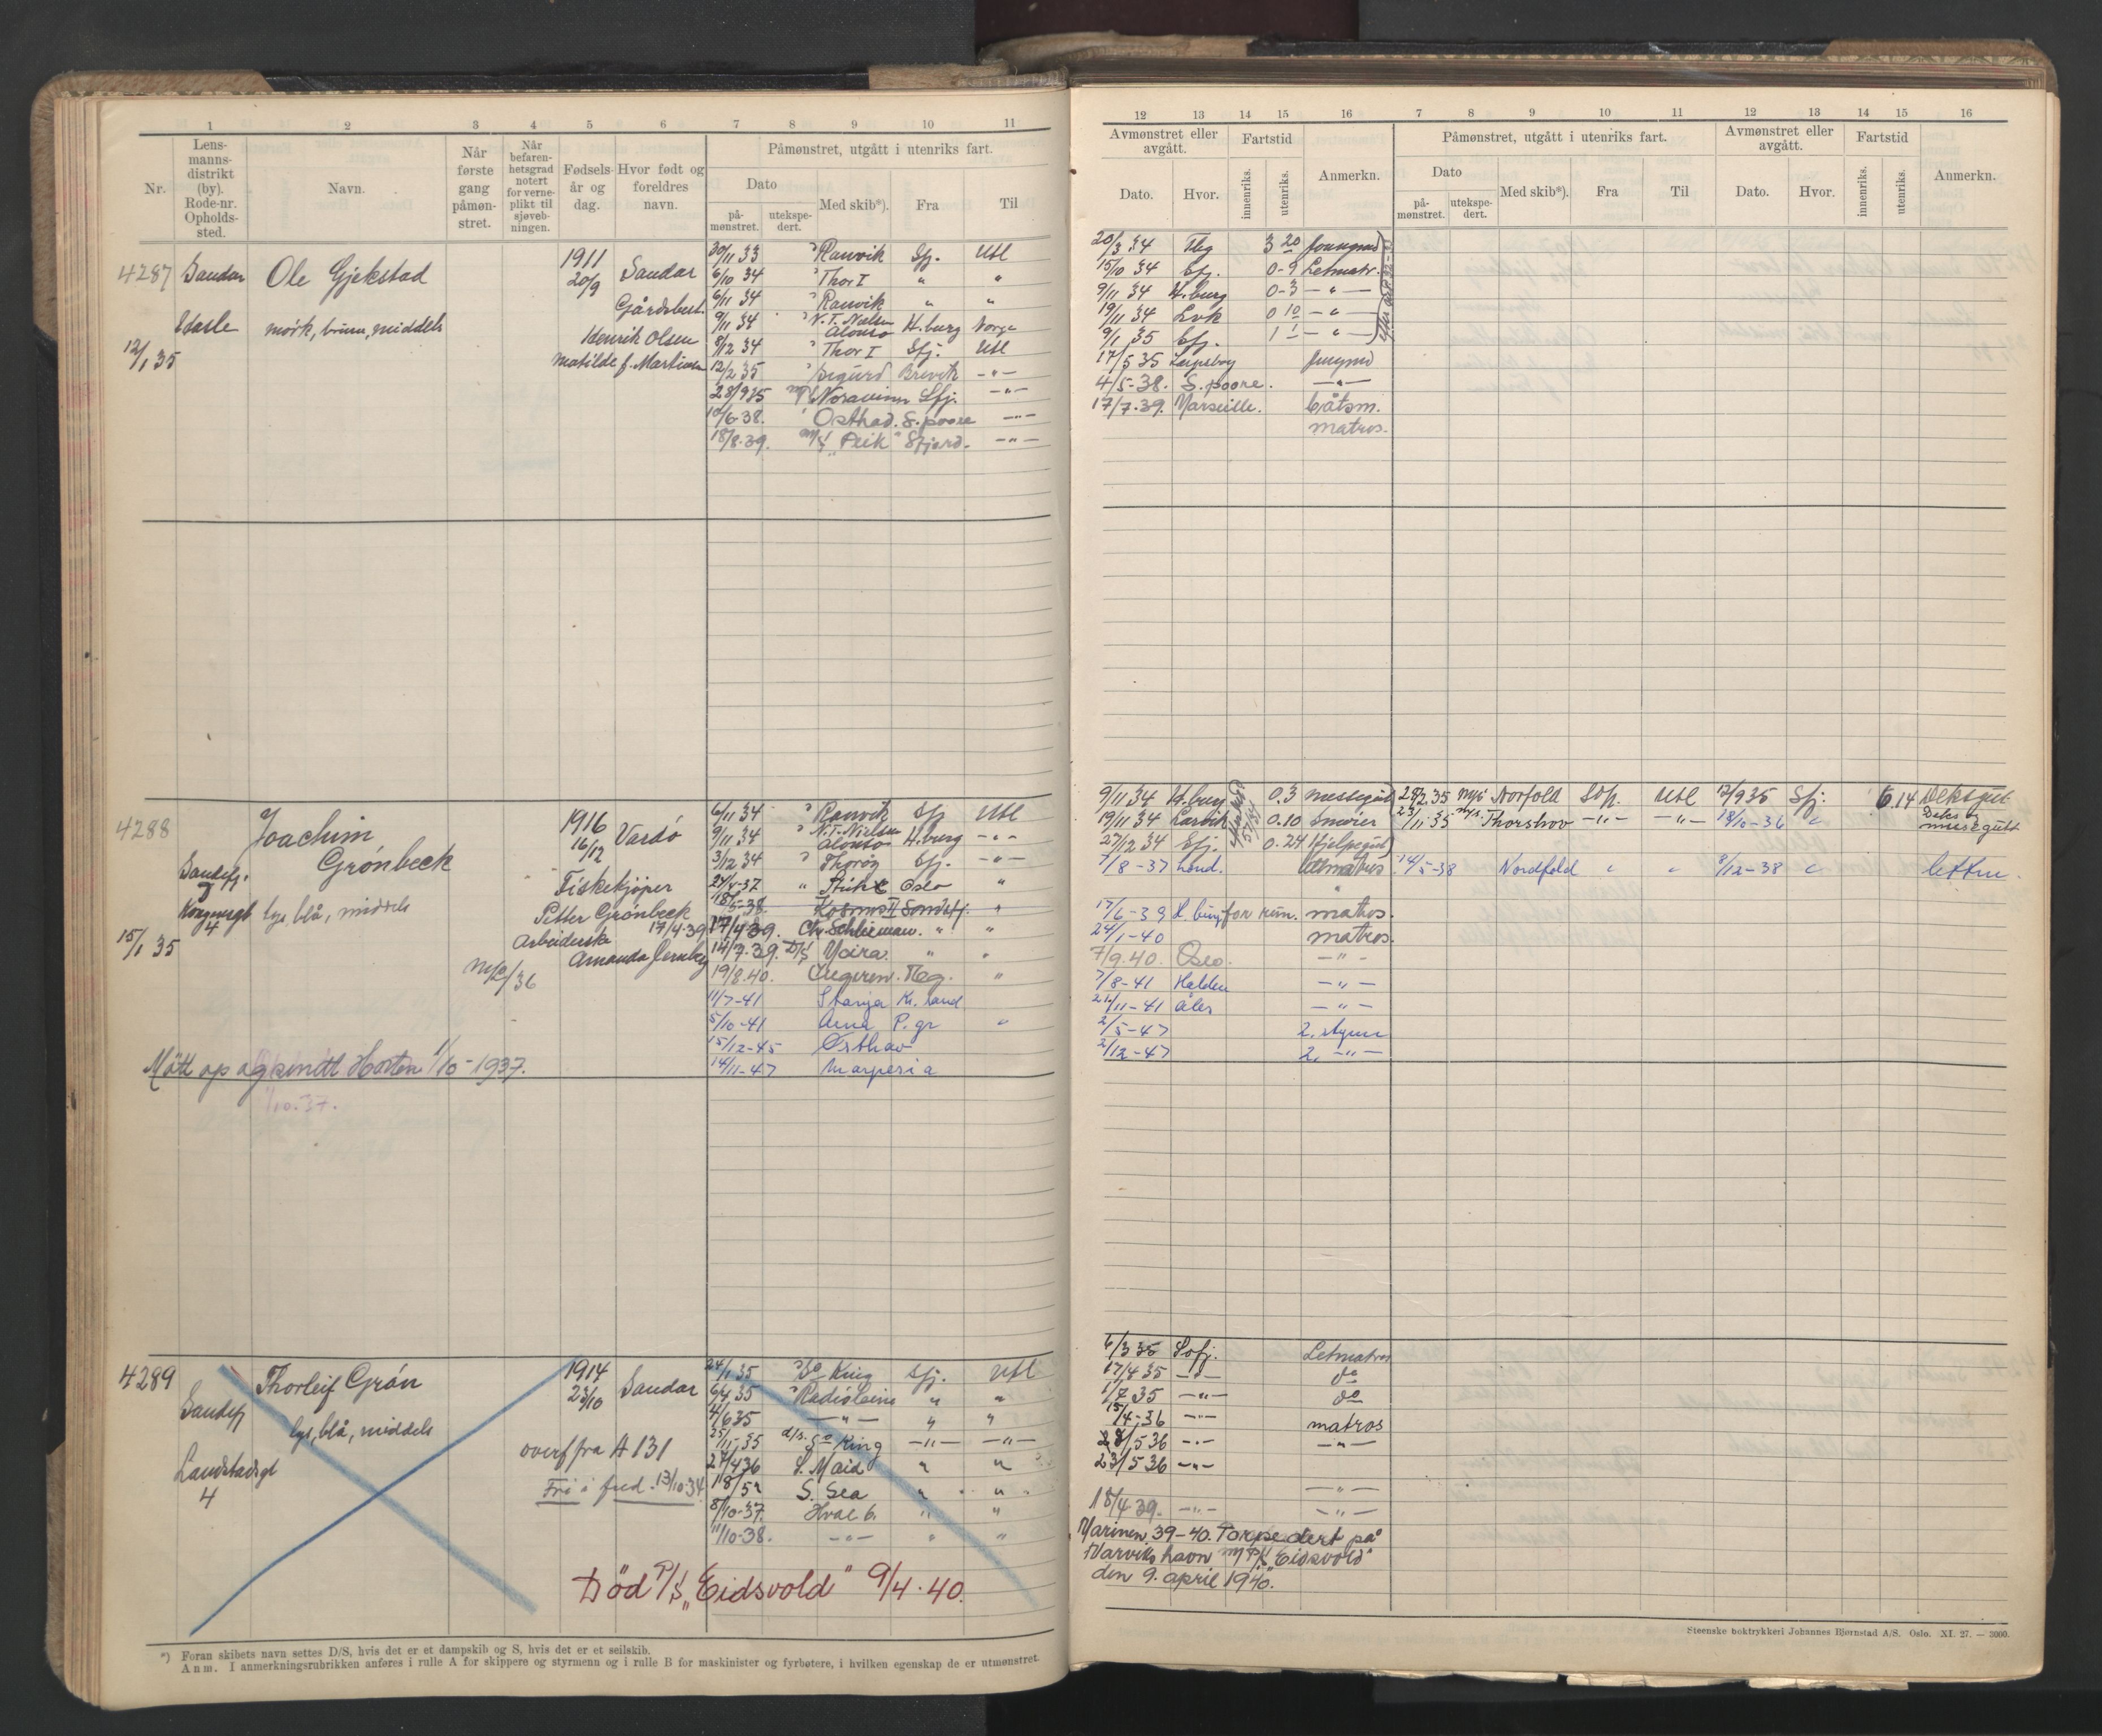 1 2 3 4 5 6 7 8 9 10 11
Nr.
Lens-
manns-
distrikt
(by).
Rode-nr.
Opholds-
sted.
Navn.
Når
første
gang
påmøn-
stret.
Når
befaren-
hetsgrad
notert
for verne-
plikt til
sjøveb-
ningen.
Fødsels-
år og
dag.
Hvor født og
foreldres
navn.
Påmønstret, utgått i utenriks fart.
Dato
på-
mønstret.
utekspe-
dert.
Med skib*).
Fra
Til
4287 Sandar Ole Gjekstad 1911 20/9 Sandar
Gårdsbest.
mørk, brun, middels
Henrik Olsen
12/1 35
Matilde f. Martinsen
30/11 33 Ranvik Sfj. Utl
6/10 34 Thor I " "
6/11 34 Ranvik " "
9/11 34 N.T. Nielsen Alonso H.burg Norge
8/12 34 Thor I Sfj. Utl
12/2 35 Sigurd Brevik -"-
28/9 35 Noravinn Sfj. -"-
10/6-38. Osthad. S.poore -"-
18/8-39. M/S "Peik" Sfjord. -"-
4288 Joachim
Grønbeck
1916 16/12 Vardø
Sandefj.
Fiskekjøper
Kongensgt 4 lys, blå, middels
Petter Grønbeck
15/1 35
Arbeiderske 17/4-39
Amanda Jernberg
6/11 34 Ranvik Sfj Utl
9/11 34 N.T. Nielsen Alonso H.burg -"-
3/12 34 Thorøy Sfj. -"-
24/4-37 " Oslo "
18/5-38. Kosmos II Sandefj. "
17/4 39. Chr. Schlieman. " "
14/7-39. D/S Moira. " "
19/8.40. Tbg. "
11/7-41 Stanja Kr.sand
5/10-41 Arna P.gr "
15/12-45 Østhav
14/11-47 Marperia
Møtt op og Horten 1/10-1937.
1/10.37.
4289 Thorleif Grån 1914 23/10 Sandar
Sandefj
lys, blå, middels
overf fra A 131
Landstadsgt
4
Fri i fred. 13/10-34
24/1 35 So King Sfj. Utl
6/4 35 Radioleine " "
4/6 35 -"- " "
25/11-35 d/s. So King -"- -"-
27/4 36 S. Maid " "
18/5 S. Sea " "
8/10-37. Hval 6. " "
11/10-38. -"- " "
Død P/S "Eidsvold" 9/4.40.
*) Foran skibets navn settes D/S, hvis det er et dampskib og S, hvis det er et seilskib.
Anm. I anmerkningsrubrikken anføres i rulle A for skippere og styrmenn og i rulle B for maskinister og fyrbøtere, i hvilken egenskap de er utmønstret.
12 13 14 15 16 7 8 9 10 11 12 13 14 15 16
Avmønstret eller
avgått.
Fartstid
Dato.
Hvor.
innenriks.
utenriks.
Anmerkn.
Påmønstret, utgått i utenriks fart.
Dato
på-
mønstret.
utekspe-
dert.
Med skib*).
Fra
Til
Avmønstret eller
avgått.
Fartstid
Dato.
Hvor.
innenriks.
utenriks.
Anmerkn.
20/3 34 Tbg 3 20 Jungmd
15/10 34 Sfj. 0-9 Letmatr.
9/11 34 H.burg 0-3 -"-
19/11 34 Lvk 0 10 -"-
9/1 35 Sfj. 1 1 -"-
17/5 35 Jungmd
4/5-38. S.poore. -"-
17/7-39. Marseille. båtsm.
matros.
9/11 34 H.burg 0.3 messegut 28/2 35 M/S Norfold Sfj. Utl 12/9 35 Sfj. 6.14 Deksgut
19/11 34 Larvik 0.10 23/11-35 M/S. Thorshov -"- -"- 18/10-36 " Deks og messegutt
27/12 34 Sfj. 0.24 Hjelpegut
7/8-37 Lond. matros 14/5-38 Nordfold " " 8/12-38 " lettm.
17/6-39 H.burg for rum. matros.
24/1-40 matros.
7/9.40. Oslo. -"-
7/8-41 Halden -"-
22/11-41 Åles -"-
2/5-47 2. styrm
2/12-47 2. -"-
6/3 35 Sefj. Letmatros
17/4 35 -"- do
1/7 35 -"- do
15/4-36 -"- matros
28/5 36 -"- -"-
23/5 36 -"-
-"-
18/4-39. -"- -"-
Marinen 39-40. Torpedert på
Narviks havn m/ P/S "Eidsvold"
den 9. april 1940.
Steenske boktrykkeri Johannes Bjørnstad A/S. Oslo. XI. 27. — 3000.